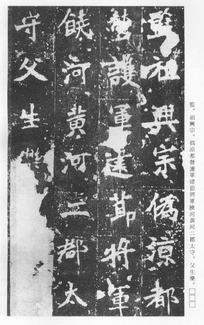 監。祖興宗，偽涼都督護軍建節將軍饒河黃河二郡太守。父生樂。□□□
監祖興宗偽涼都
督護軍建節將軍
饒河黃河二郡太
守父生